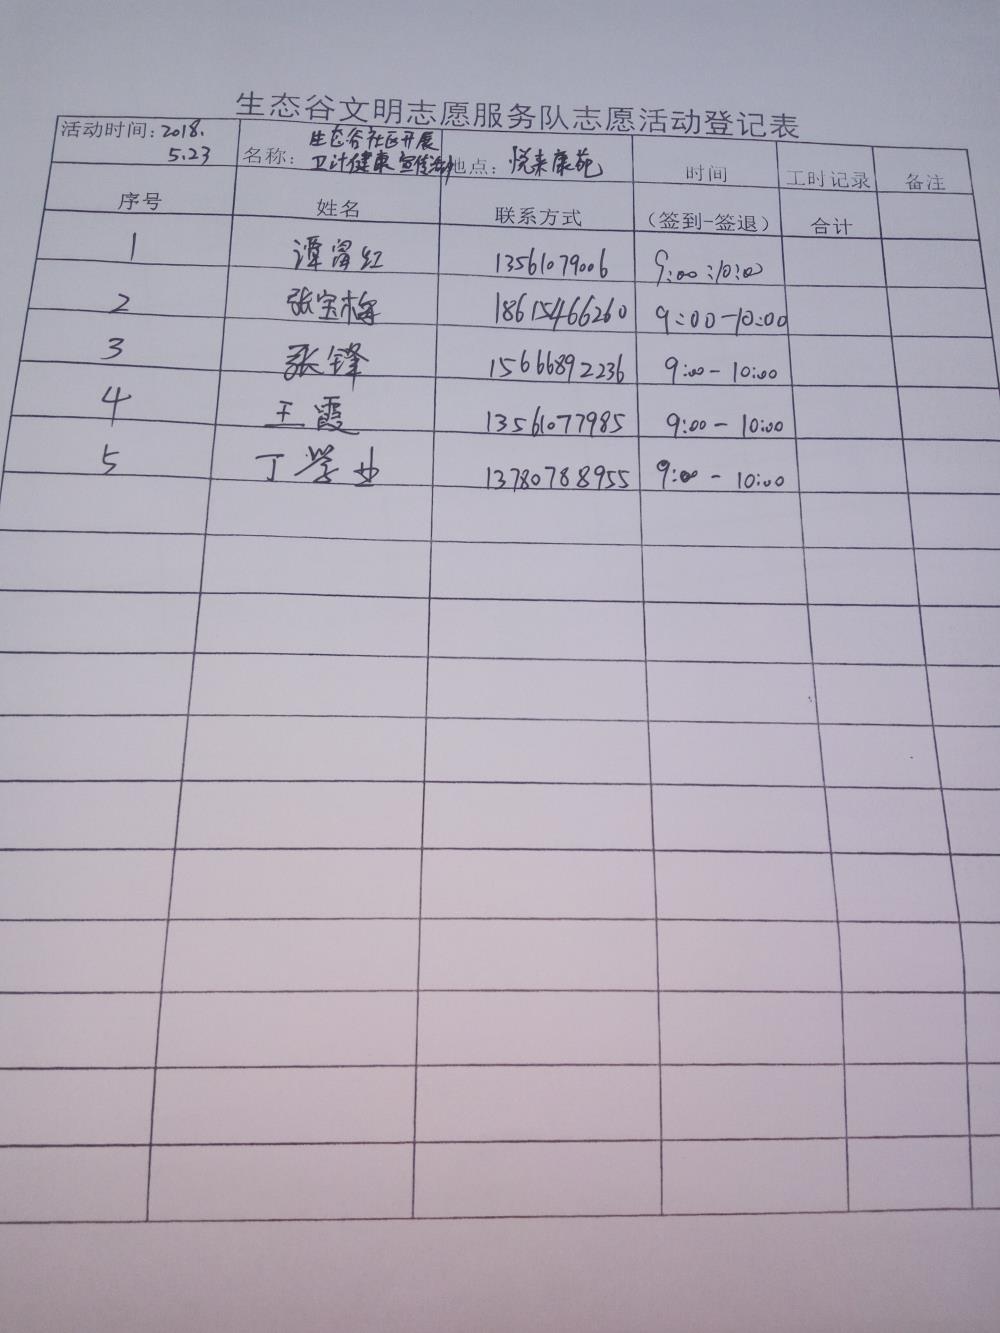 生态谷文明志愿服务队志愿活动登记表
活动时间：2018.5.23 名称：生态谷社区开展卫计健康宣传活动 地点：悦来康苑 时间 工时记录 备注
序号 姓名 联系方式 （签到-签退） 合计
1 谭富红 13561079006 9:00:10:00
2 张宝梅 18615466260 9:00-10:00
3 张锋 15666892236 9:00-10:00
4 王霞 13561077985 9:00-10:00
5 丁学业 13780788955 9:00-10:00